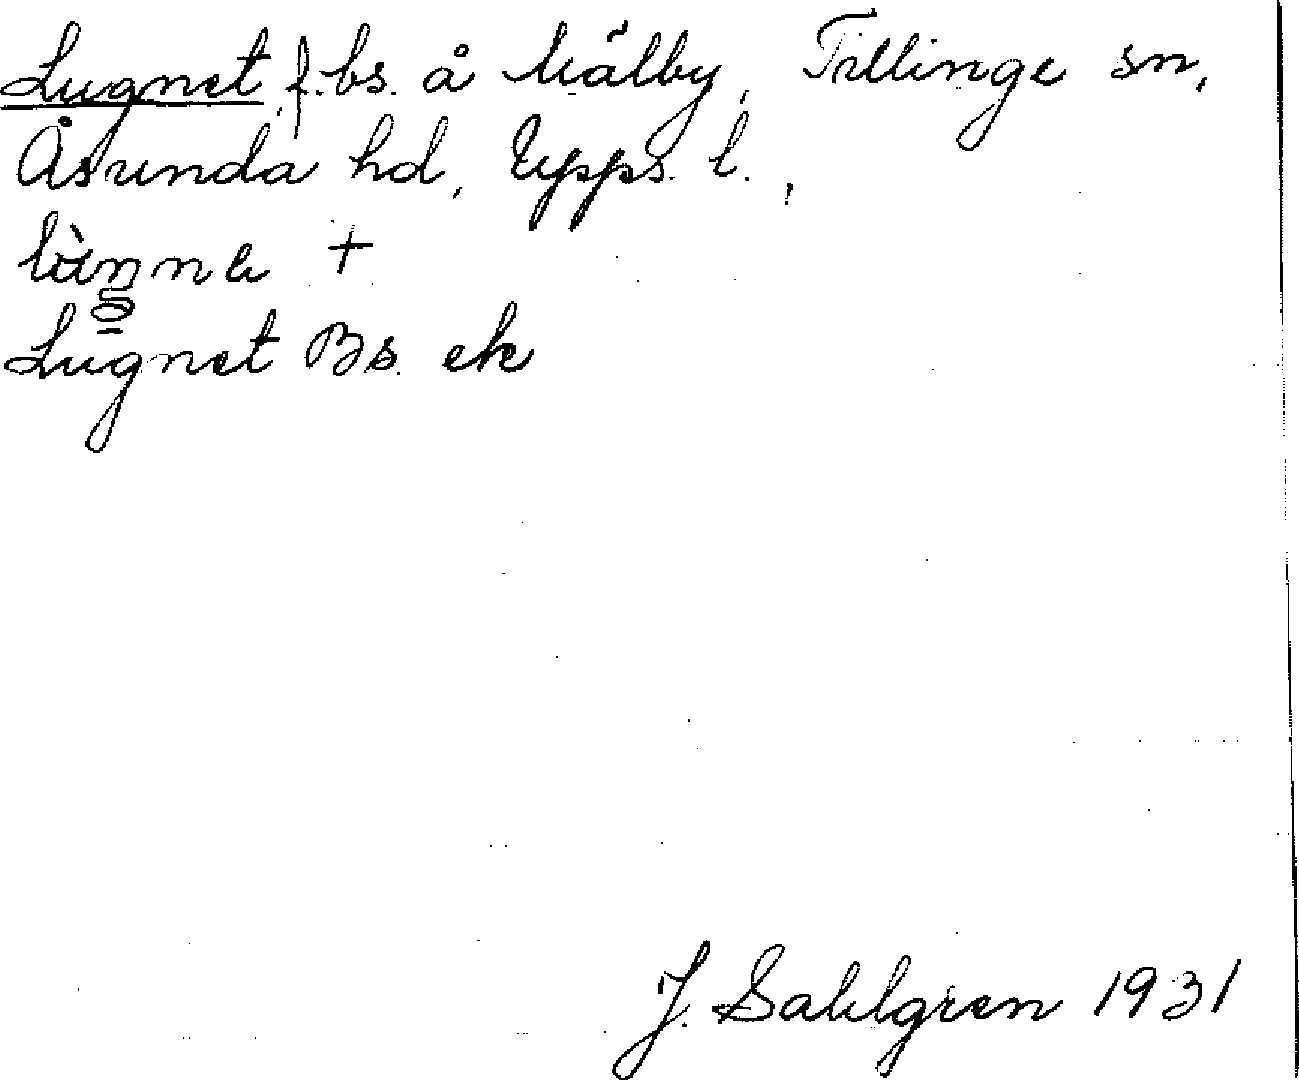 Lugnet, f. bs. å Mälby, Tillinge sn,
Åsunda hd, Upps. l.,
lùŋnə +
Lugnet Bs. ek
J. Sahlgren 1931